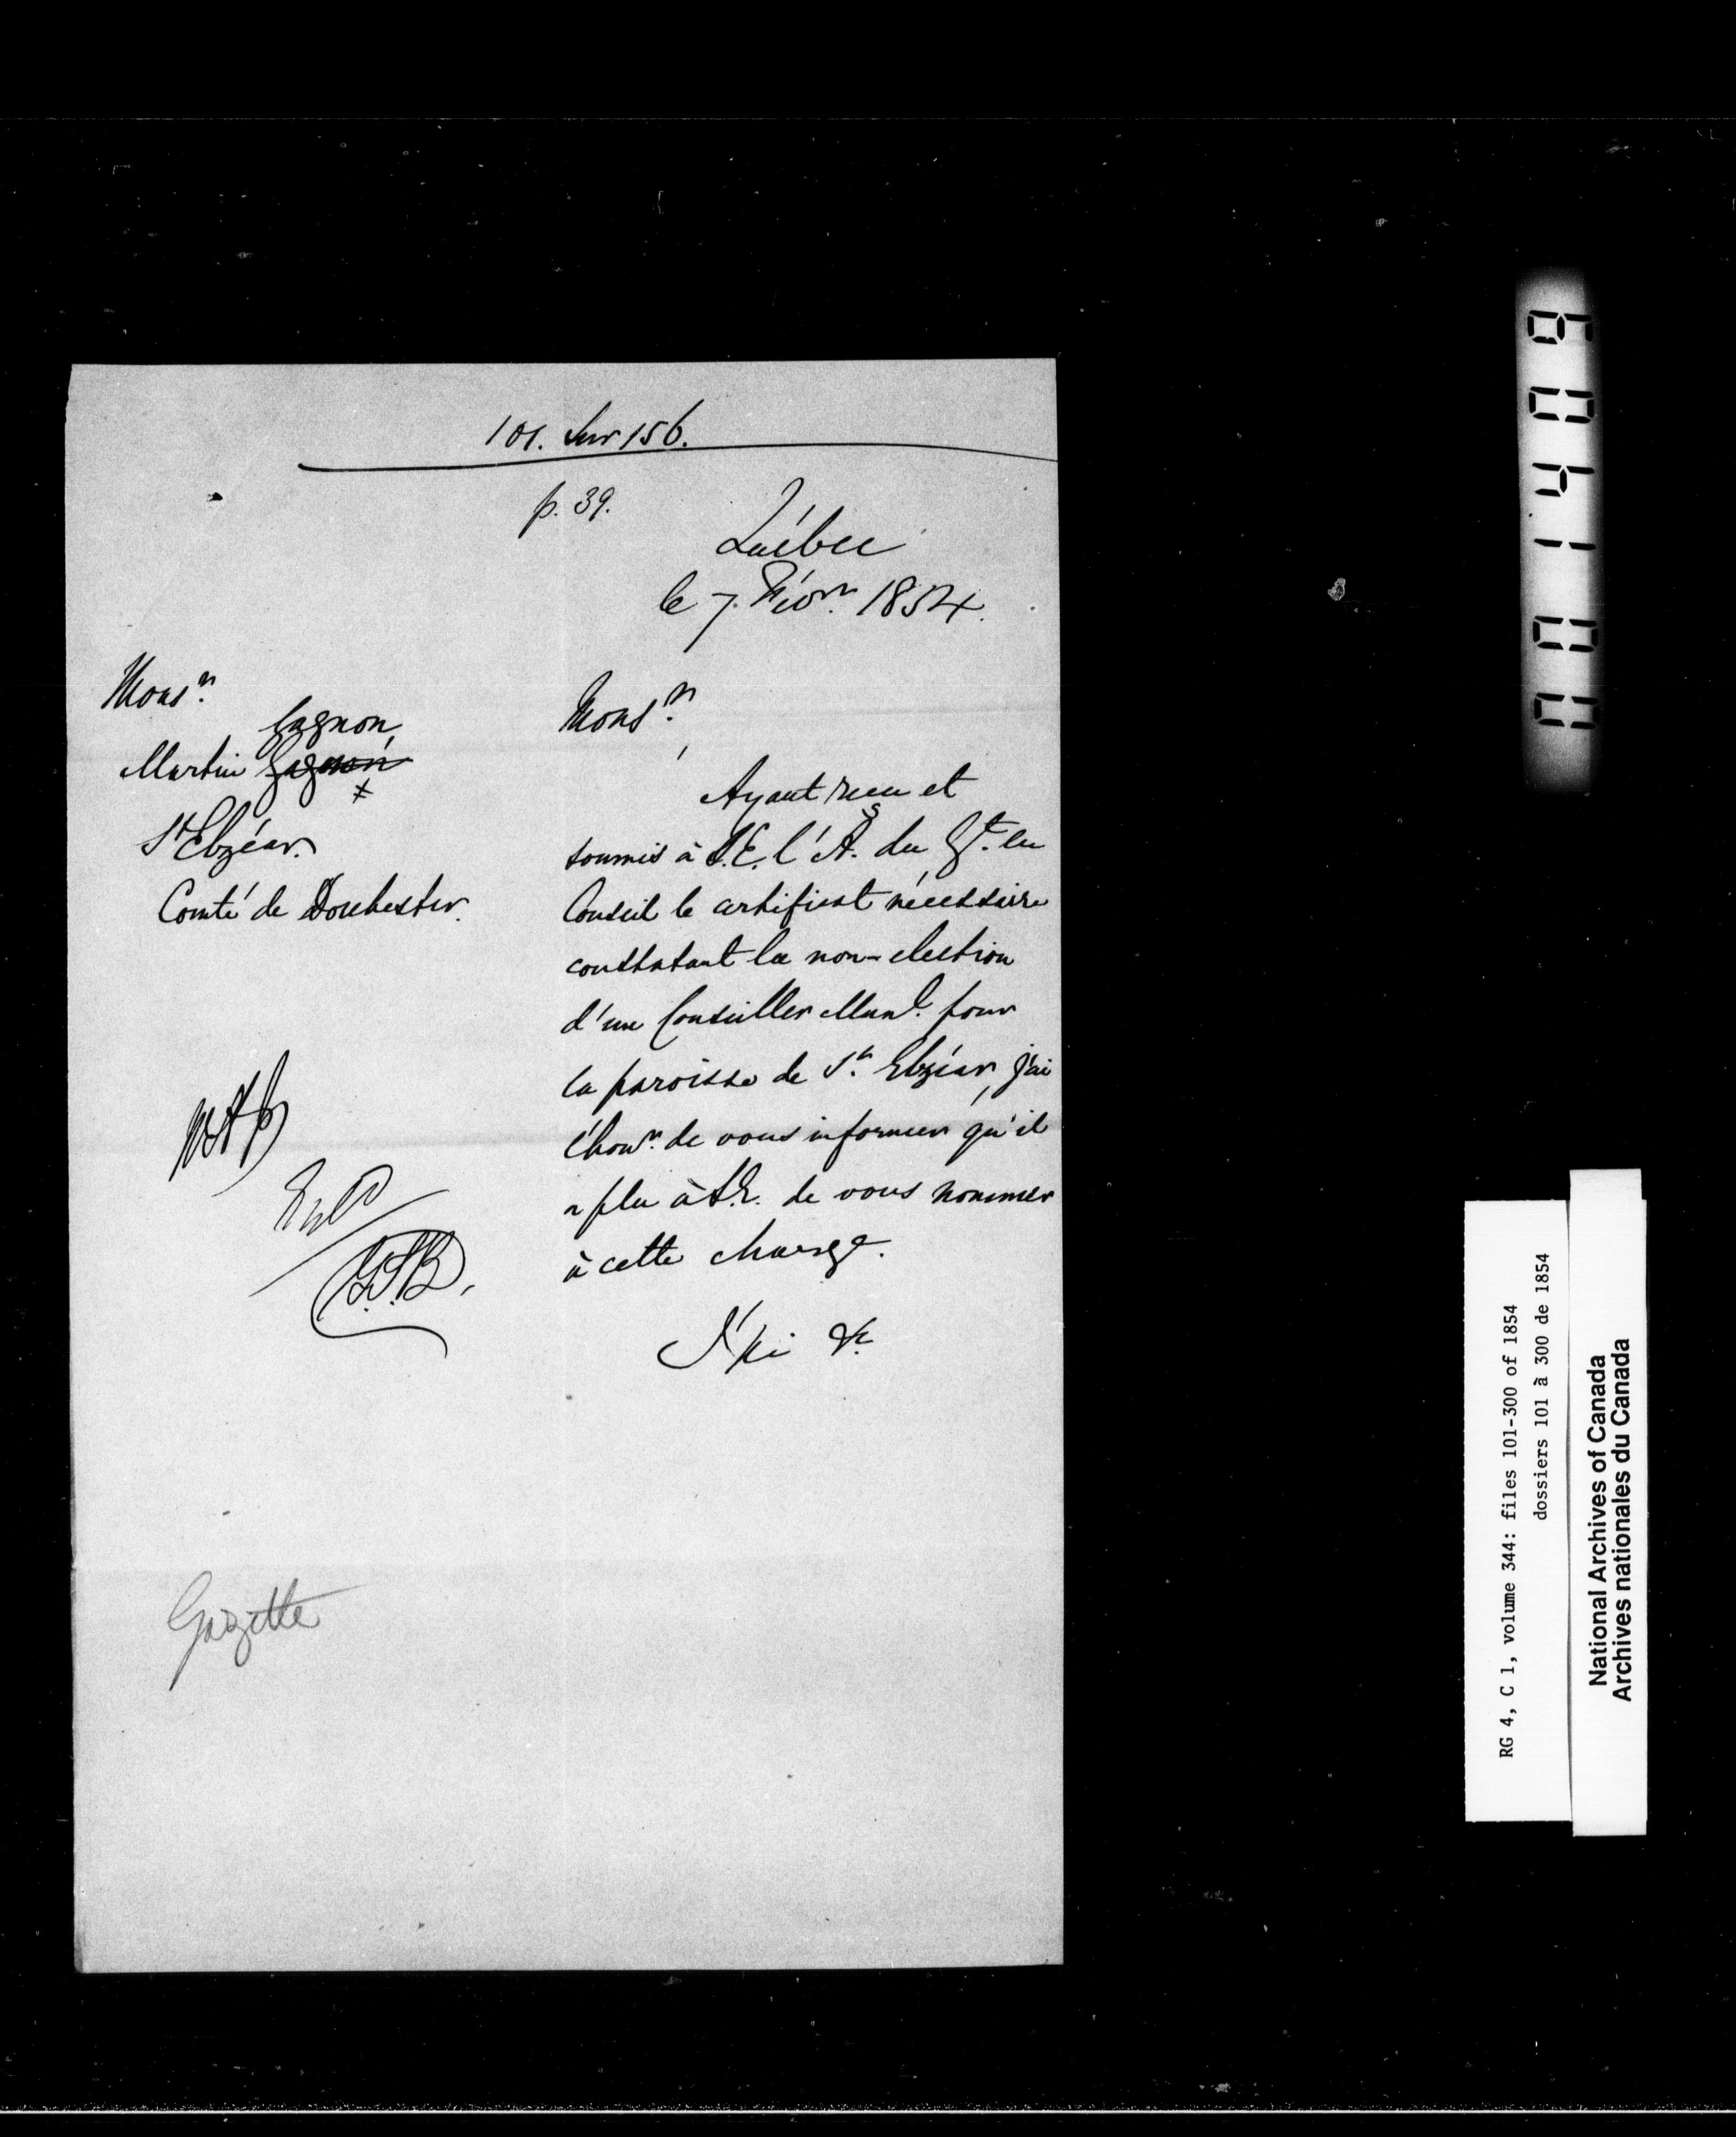 101. Sur 156.
p. 39.
Québec
le 7. Févr. 1854.
Monsr.
Gagnon,
Martin Gagnon
St Elzéar.
Comté de Dorchester.
Monsr.
Ayant reçu et
soumis à S.E. l'A. du Gt. en
Conseil le certificat nécessaire
constatant la non-election
d'un Conseiller Munl. pour
la paroisse de St. Elzéar, j'ai
l'honr. de vous informer qu'il
a plu à S.E. de vous nommer
à cette charge.
J'ai &c.
Gazette
001409
RG 4, C 1, volume 344: files 101-300 of 1854
dossiers 101 à 300 de 1854
National Archives of Canada
Archives nationales du Canada